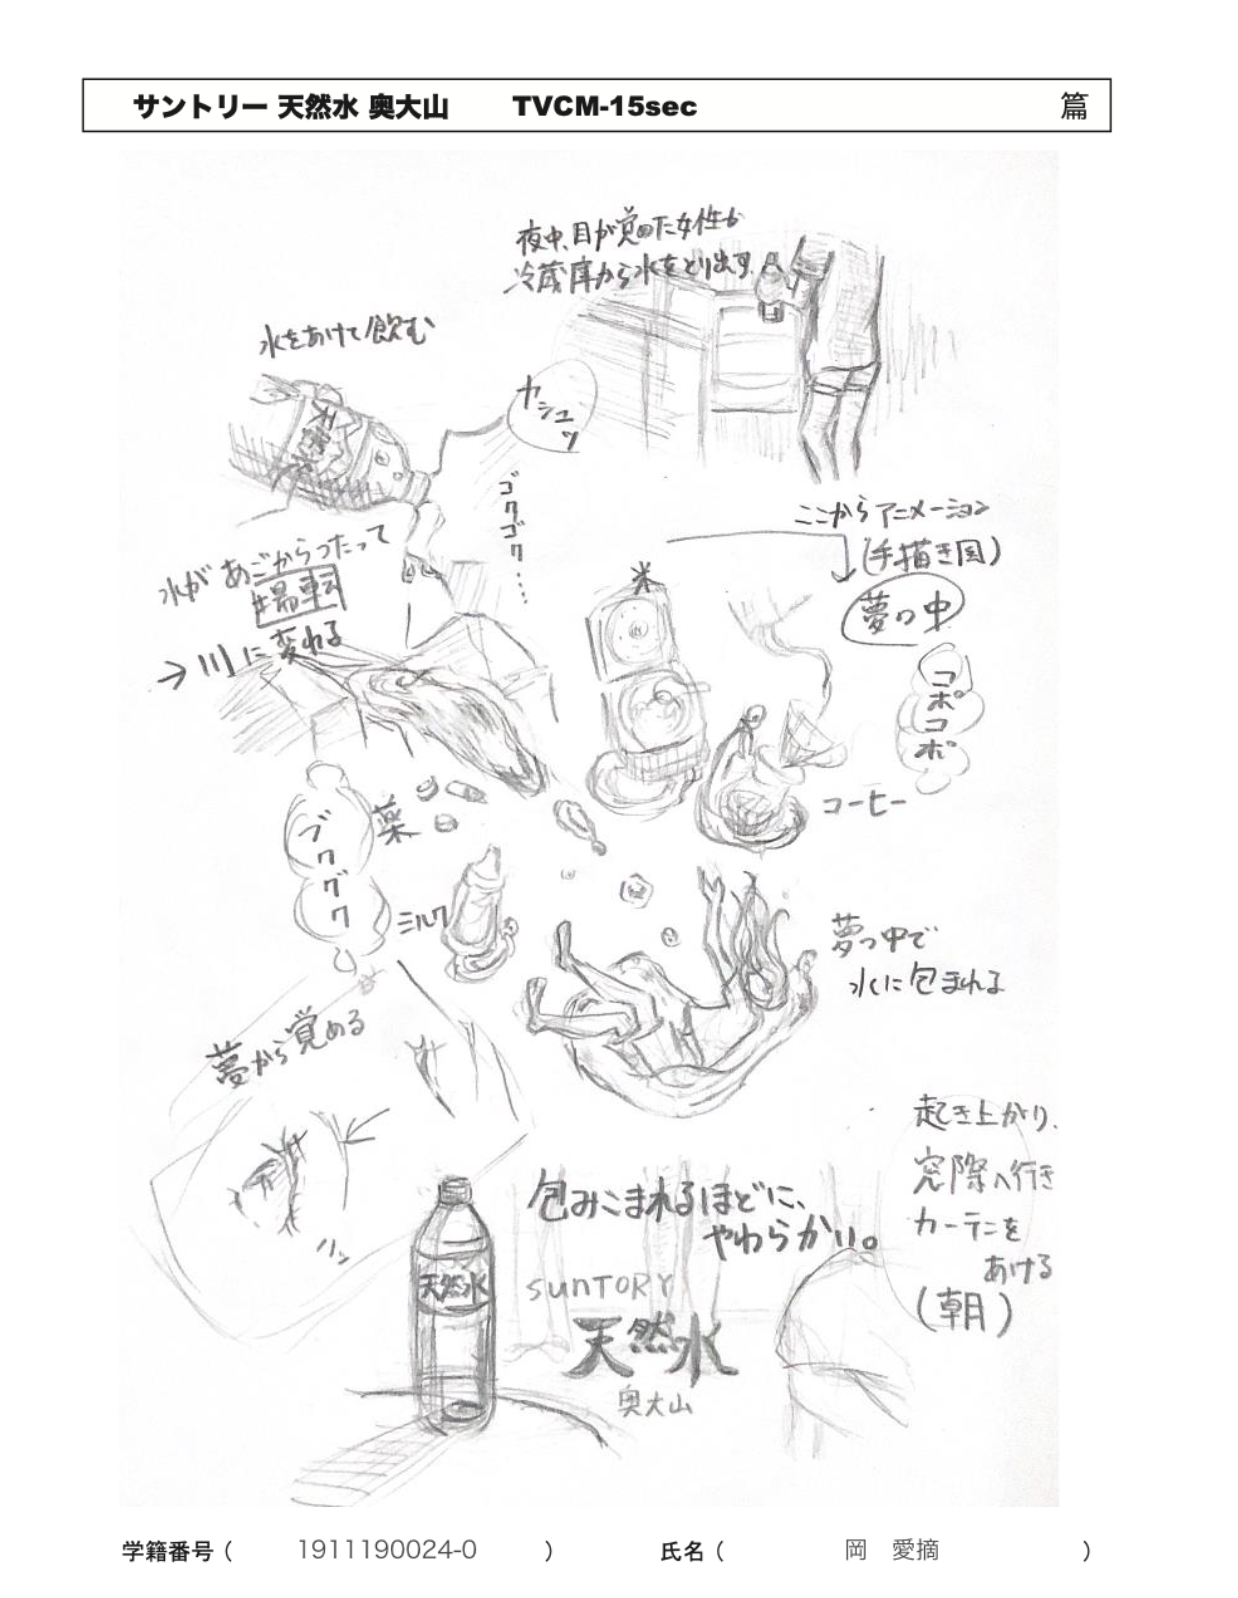 サントリー 天然水 奥大山 TVCM-15sec 篇
夜中、目が覚めた女性が
冷蔵庫から水をとり出す。
水をあけて飲む
カシュッ
ゴクゴク…
天然水
水があごからつたって
→川に変わる
ここからアニメーション
(手描き風)
夢の中
コポコポ
コーヒー
薬
ブクブク
ミルク
夢の中で
水に包まれる
夢から覚める
ハッ
起き上がり、
窓際へ行き
カーテンを
あける
(朝)
包みこまれるほどに、
やわらかい。
天然水
SUNTORY
天然水
奥大山
学籍番号 ( 1911190024-0 ) 氏名 ( 岡 愛摘 )